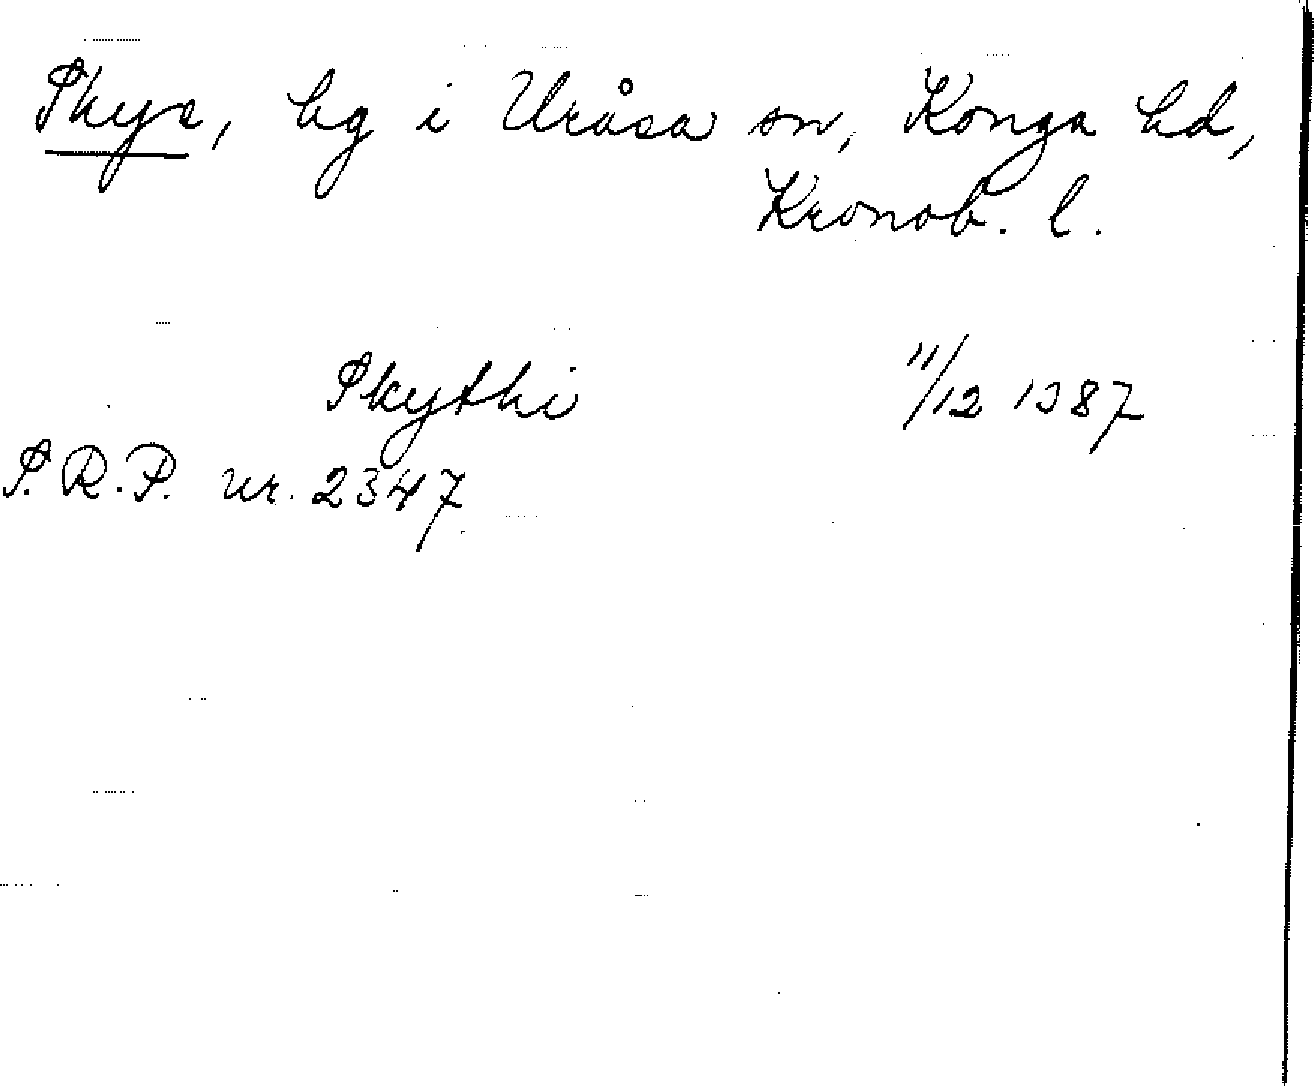 Skye, hg i Uråsa sn, Konga hd,
Kronob. l.
Skythi 11/12 1387
S.R.P. nr. 2347